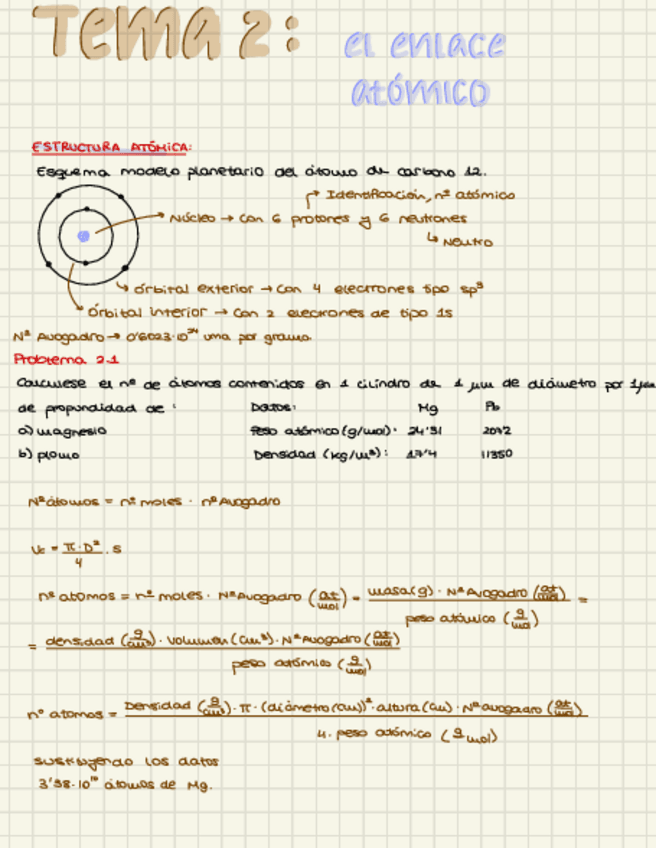 Tema 2: el enlace
atómico
ESTRUCTURA ATÓMICA:
Esquema modelo planetario del átomo de carbono 12.
Identificación, nº atómico
Núcleo → con 6 protones y 6 neutrones
Neutro
órbital exterior → con 4 electrones tipo sp³
órbital interior → con 2 electrones de tipo 1s
Nº Avogadro → 0'6023·10²⁴ uma por gramo.
Problema 2.1
Calcúlese el nº de átomos contenidos en 1 cilindro de 1 μm de diámetro por 1μm
de profundidad de: Datos: Mg Pb
a) magnesio Peso atómico (g/mol): 24'31 207'2
b) plomo Densidad (kg/m³): 1'74 11350
Nº átomos = nº moles · nº Avogadro
Vc = π·D²/4 · s
nº átomos = nº moles · Nº Avogadro (at/mol) = masa(g) · Nº Avogadro (at/mol) / peso atómico (g/mol) =
= densidad (g/cm³) · Volumen (cm³) · Nº Avogadro (at/mol) / peso atómico (g/mol)
nº atomos = Densidad (g/cm³) · π · (diámetro (cm))² · altura (cm) · Nº avogadro (at/mol) / 4 · peso atómico (g mol)
sustituyendo los datos
átomos de Mg.